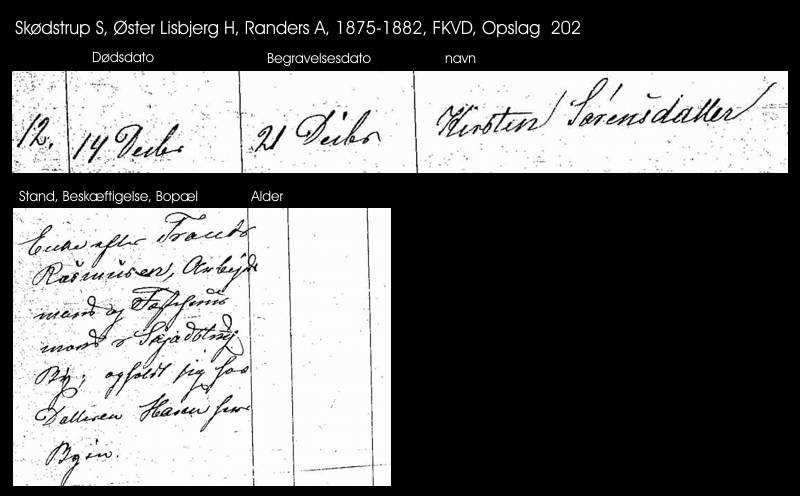 Skødstrup S, Øster Lisbjerg H, Randers A, 1875-1882, FKVD, Opslag 202
Dødsdato Begravelsesdato navn
12. 14 Decbr 21 Decbr Kirsten Sørensdatter
Stand, Beskæftigelse, Bopæl Alder
Enke efter Frands
Rasmusen, Arbejds
mand og
mand i Skjødstrup
By, opholdt sig hos
Datteren Maren
Byen.